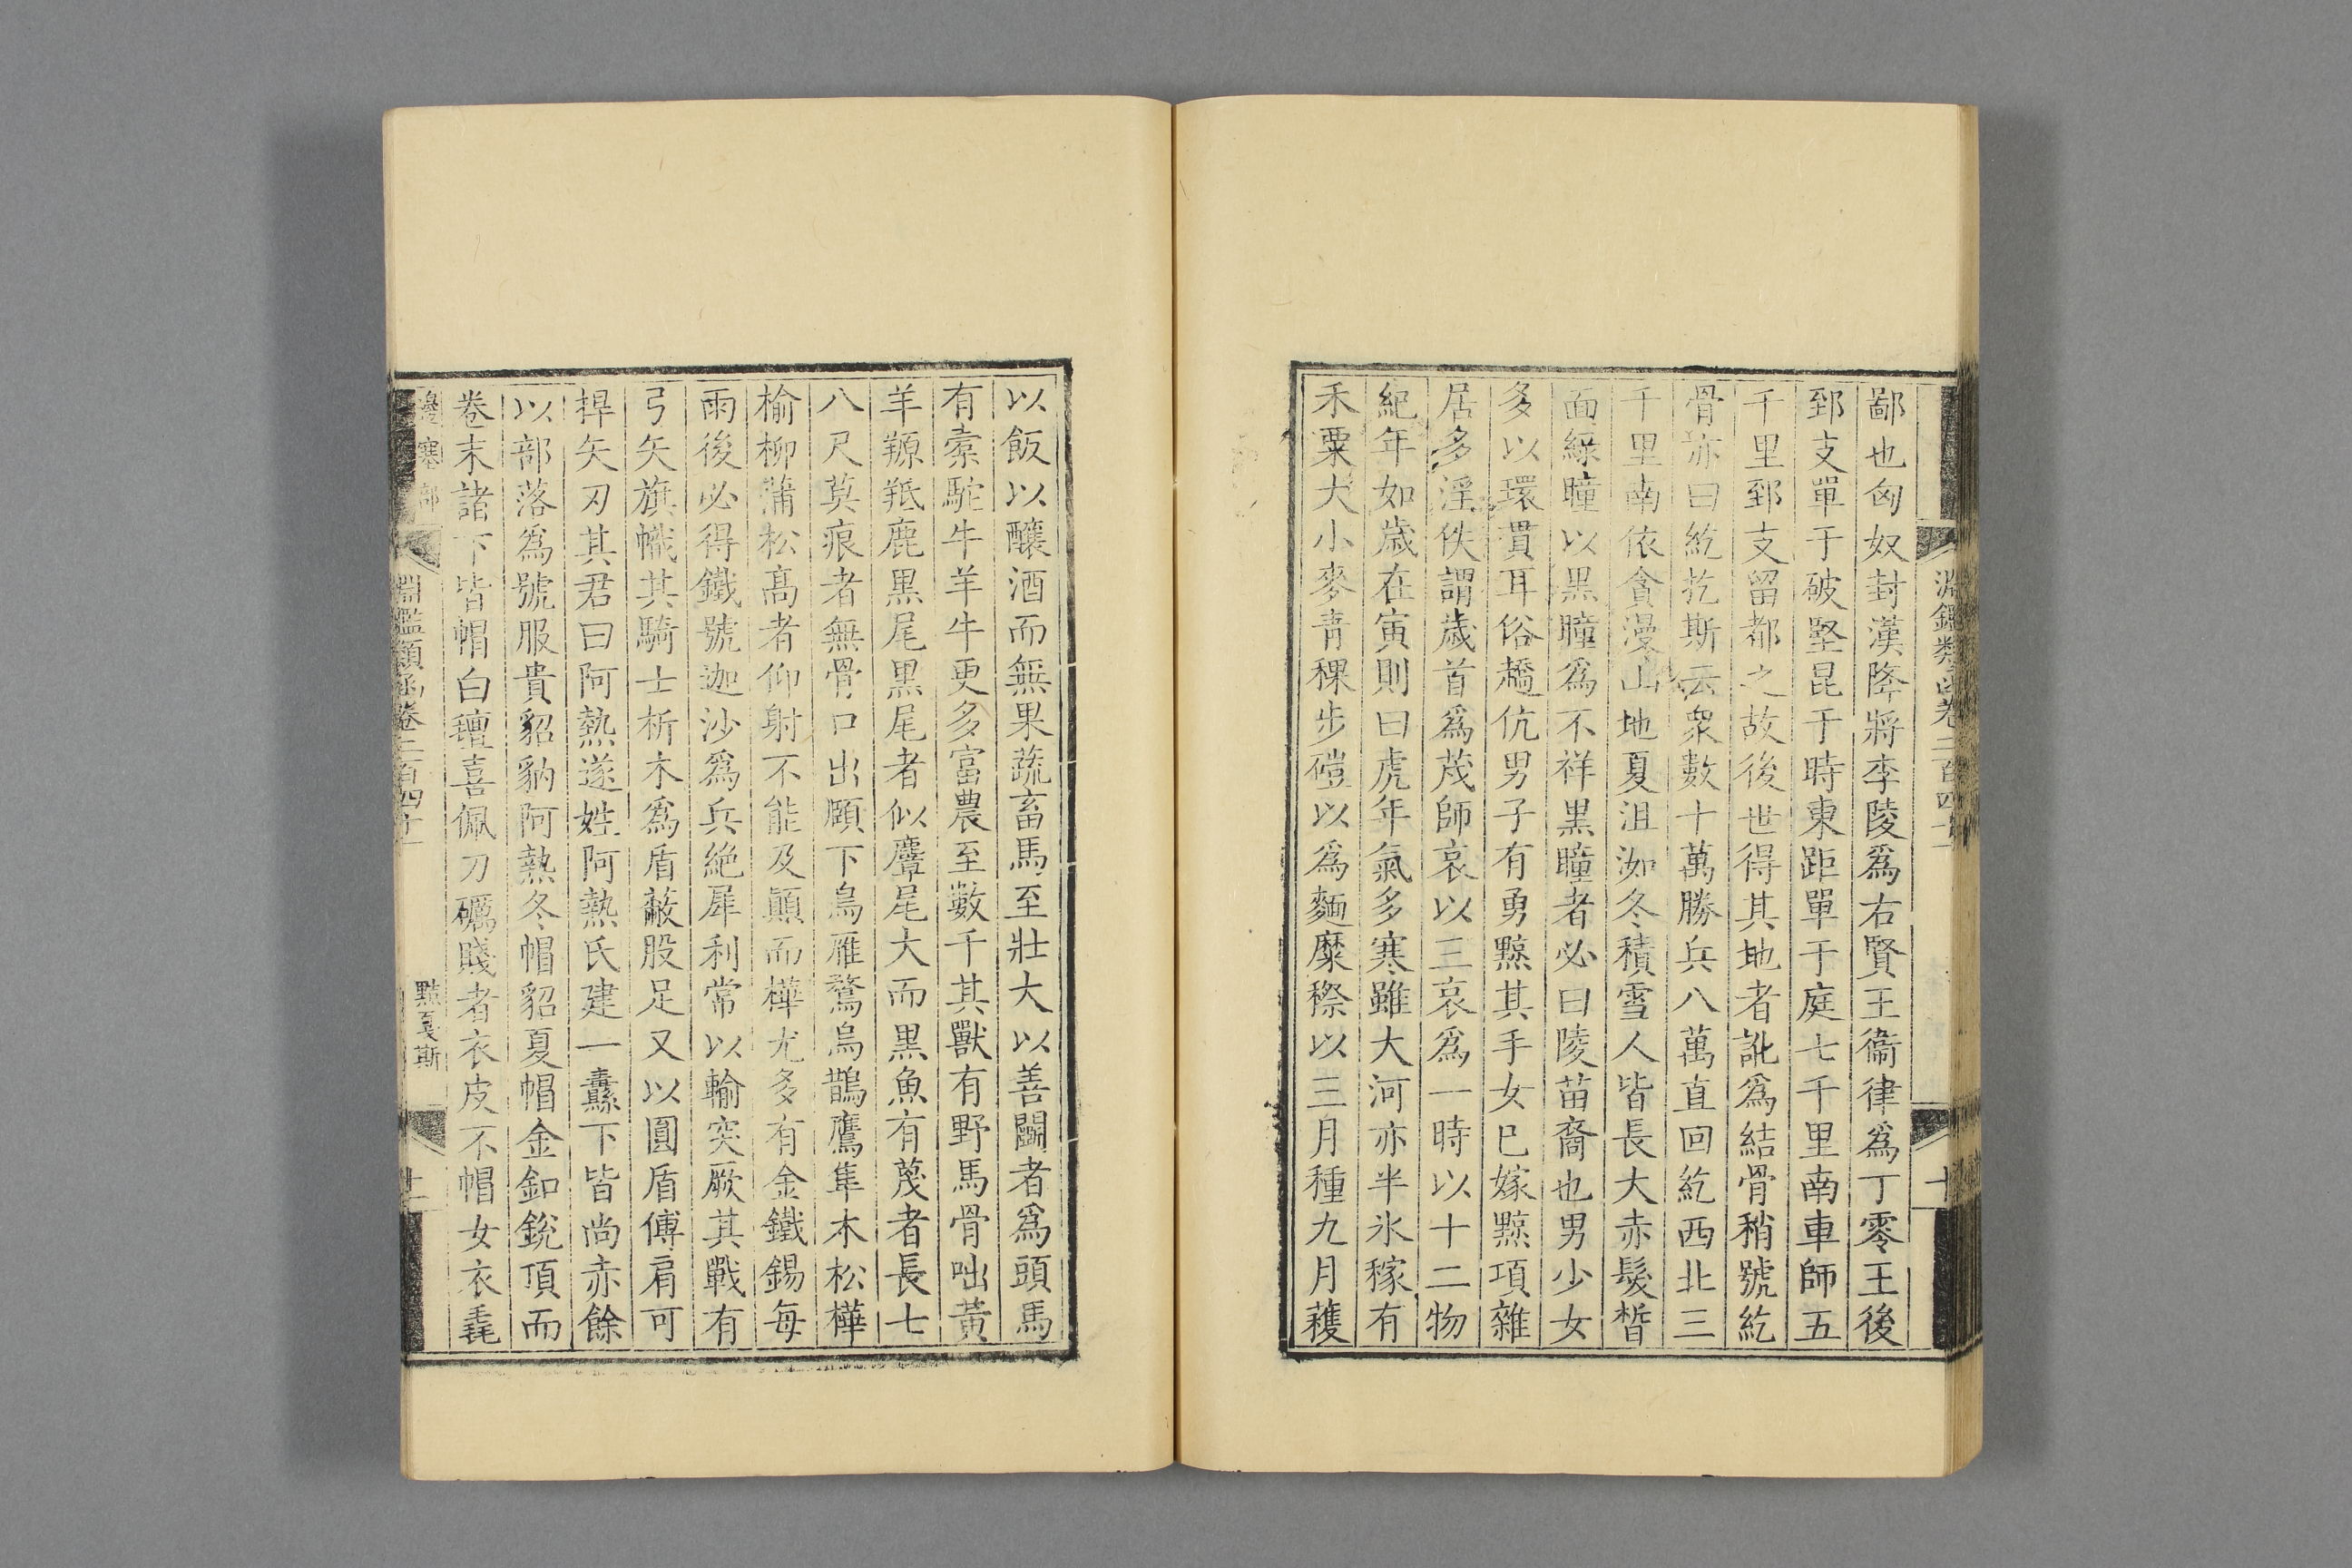 淵鑑類函卷二百四十一
十
鄙也匈奴封漢降將李陵爲右賢王衞律爲丁零王後
郅支單于破堅昆于時東距單于庭七千里南車師五
千里郅支留都之故後世得其地者訛爲結骨稍號紇
骨亦曰紇扢斯云衆數十萬勝兵八萬直回紇西北三
千里南依貪漫山地夏沮洳冬積雪人皆長大赤髮皙
面綠瞳以黑瞳爲不祥黑瞳者必曰陵苗裔也男少女
多以環貫耳俗趫伉男子有勇黥其手女巳嫁黥項雜
居多淫佚謂歲首爲茂師哀以三哀爲一時以十二物
紀年如歲在寅則曰虎年氣多寒雖大河亦半氷稼有
禾粟大小麥靑稞步磑以爲麵糜穄以三月種九月穫
以飯以釀酒而無果蔬畜馬至壯大以善鬭者爲頭馬
有橐駝牛羊牛更多富農至數千其獸有野馬骨咄黃
羊羱羝鹿黑尾黑尾者似麞尾大而黑魚有蔑者長七
八尺莫痕者無骨口出頤下鳥雁鶩烏鵲鷹隼木松樺
榆柳蒲松高者仰射不能及顚而樺尤多有金鐵錫每
雨後必得鐵號迦沙爲兵絕犀利常以輸突厥其戰有
弓矢旗幟其騎士析木爲盾蔽股足又以圓盾傅肩可
捍矢刃其君曰阿熱遂姓阿熱氏建一纛下皆尚赤餘
以部落爲號服貴貂豽阿熱冬帽貂夏帽金釦銳頂而
卷末諸下皆帽白氊喜佩刀礪賤者衣皮不帽女衣毳
邊塞部
淵鑑類函卷二百四十一
黠戛斯
十一